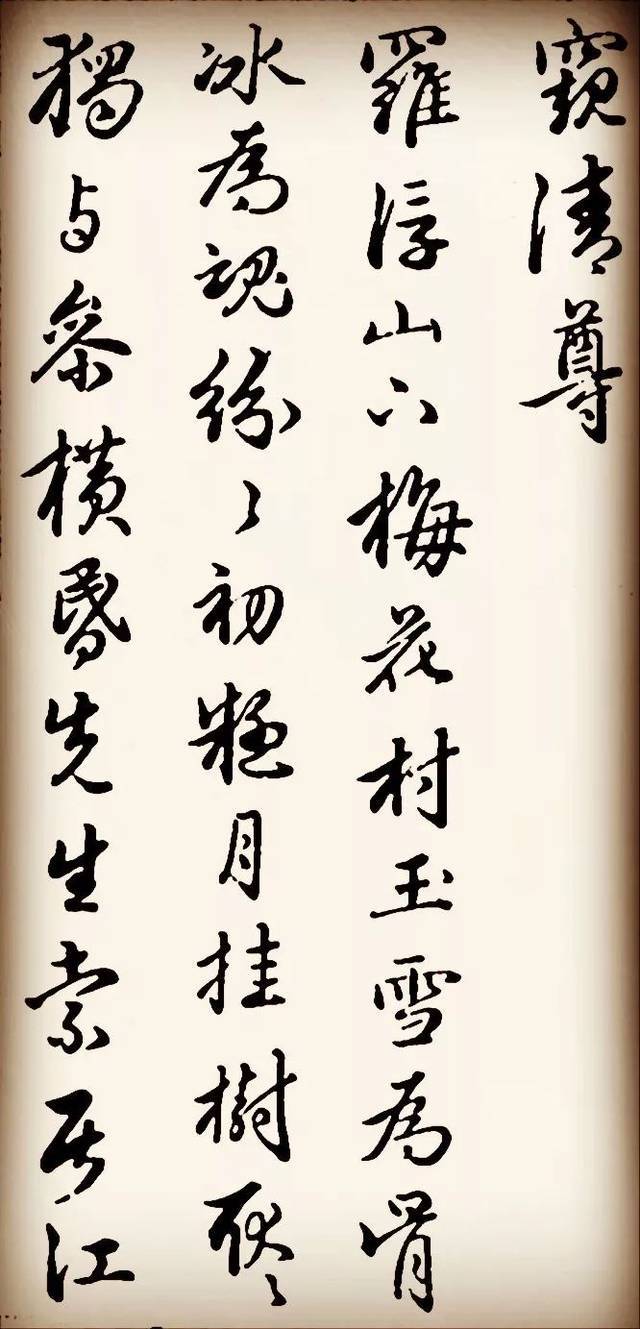 窺清尊
羅浮山下梅花村玉雪為骨
冰為魂紛々初疑月挂樹耿々
獨与參横昏先生索居江